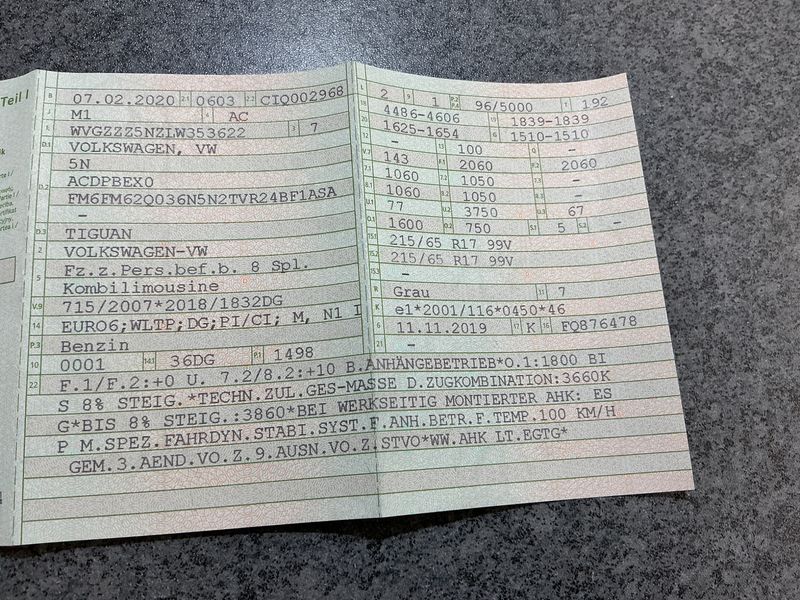 Teil I
B 07.02.2020 2.1 0603 2.2 CIQ002968
J M1 4 AC
E WVGZZZ5NZLW353622 3 7
D.1 VOLKSWAGEN, VW
5N
D.2 ACDPBEX0
FM6FM62Q036N5N2TVR24BF1ASA
–
D.3 TIGUAN
2 VOLKSWAGEN-VW
5 Fz.z.Pers.bef.b. 8 Spl.
Kombilimousine
V.9 715/2007*2018/1832DG
14 EURO6;WLTP;DG;PI/CI; M, N1 I
P.3 Benzin
10 0001 14.1 36DG P.1 1498
L 2 9 1 P.2 P.4 96/5000 T 192
18 4486-4606 19 1839-1839
20 1625-1654 G 1510-1510
12 – 13 100 Q –
V.7 143 F.1 2060 F.2 2060
7.1 1060 7.2 1050 7.3 –
8.1 1060 8.2 1050 8.3 –
U.1 77 U.2 3750 U.3 67
O.1 1600 O.2 750 S.1 5 S.2 –
15.1 215/65 R17 99V
15.2 215/65 R17 99V
15.3 –
R Grau 11 7
K e1*2001/116*0450*46
6 11.11.2019 17 K 16 FQ876478
21 –
22 F.1/F.2:+0 U. 7.2/8.2:+10 B.ANHÄNGEBETRIEB*O.1:1800 BI
S 8% STEIG.*TECHN.ZUL.GES-MASSE D.ZUGKOMBINATION:3660K
G*BIS 8% STEIG.:3860*BEI WERKSEITIG MONTIERTER AHK: ES
P M.SPEZ.FAHRDYN.STABI.SYST.F.ANH.BETR.F.TEMP.100 KM/H
GEM.3.AEND.VO.Z.9.AUSN.VO.Z.STVO*WW.AHK LT.EGTG*